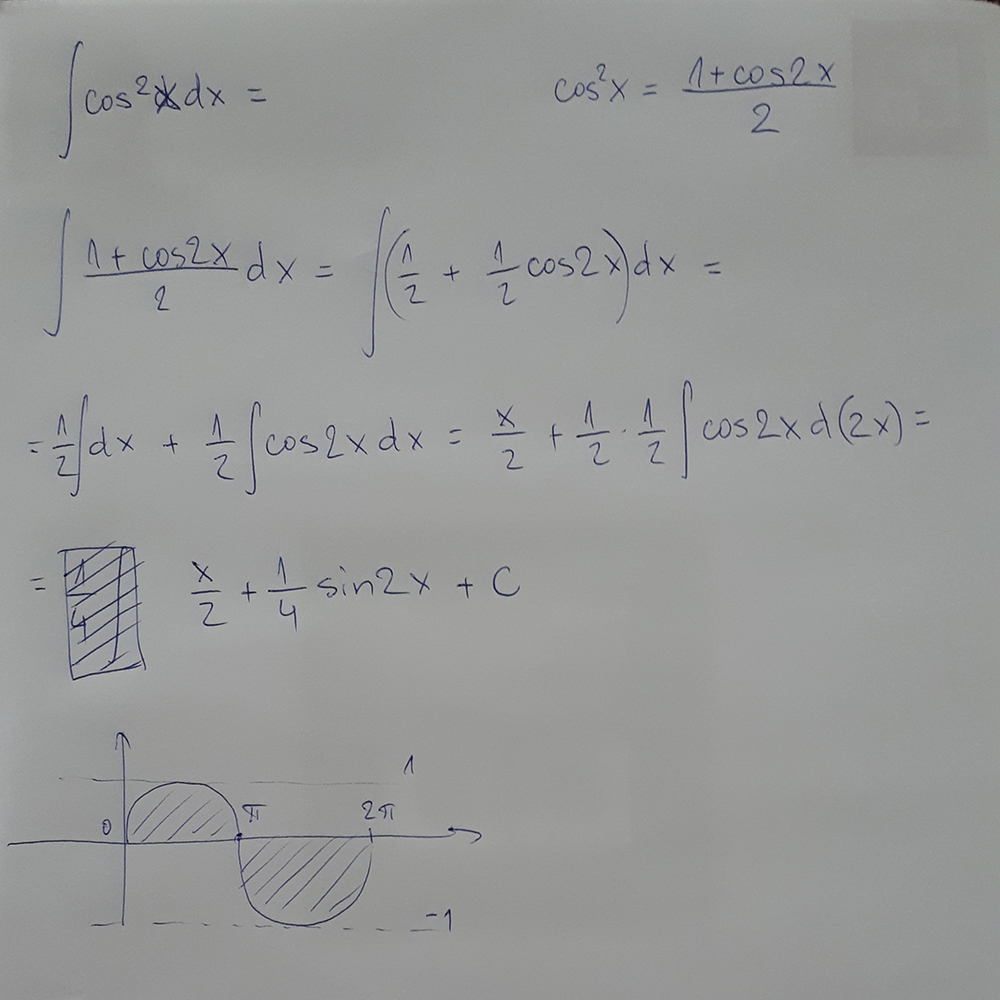 ∫cos²x dx = cos²x = (1+cos2x)/2
∫(1+cos2x)/2 dx = ∫(1/2 + 1/2 cos2x)dx =
= 1/2∫dx + 1/2∫cos2x dx = x/2 + 1/2 · 1/2∫cos2x d(2x) =
= x/2 + 1/4 sin2x + C
1
0 π 2π
-1